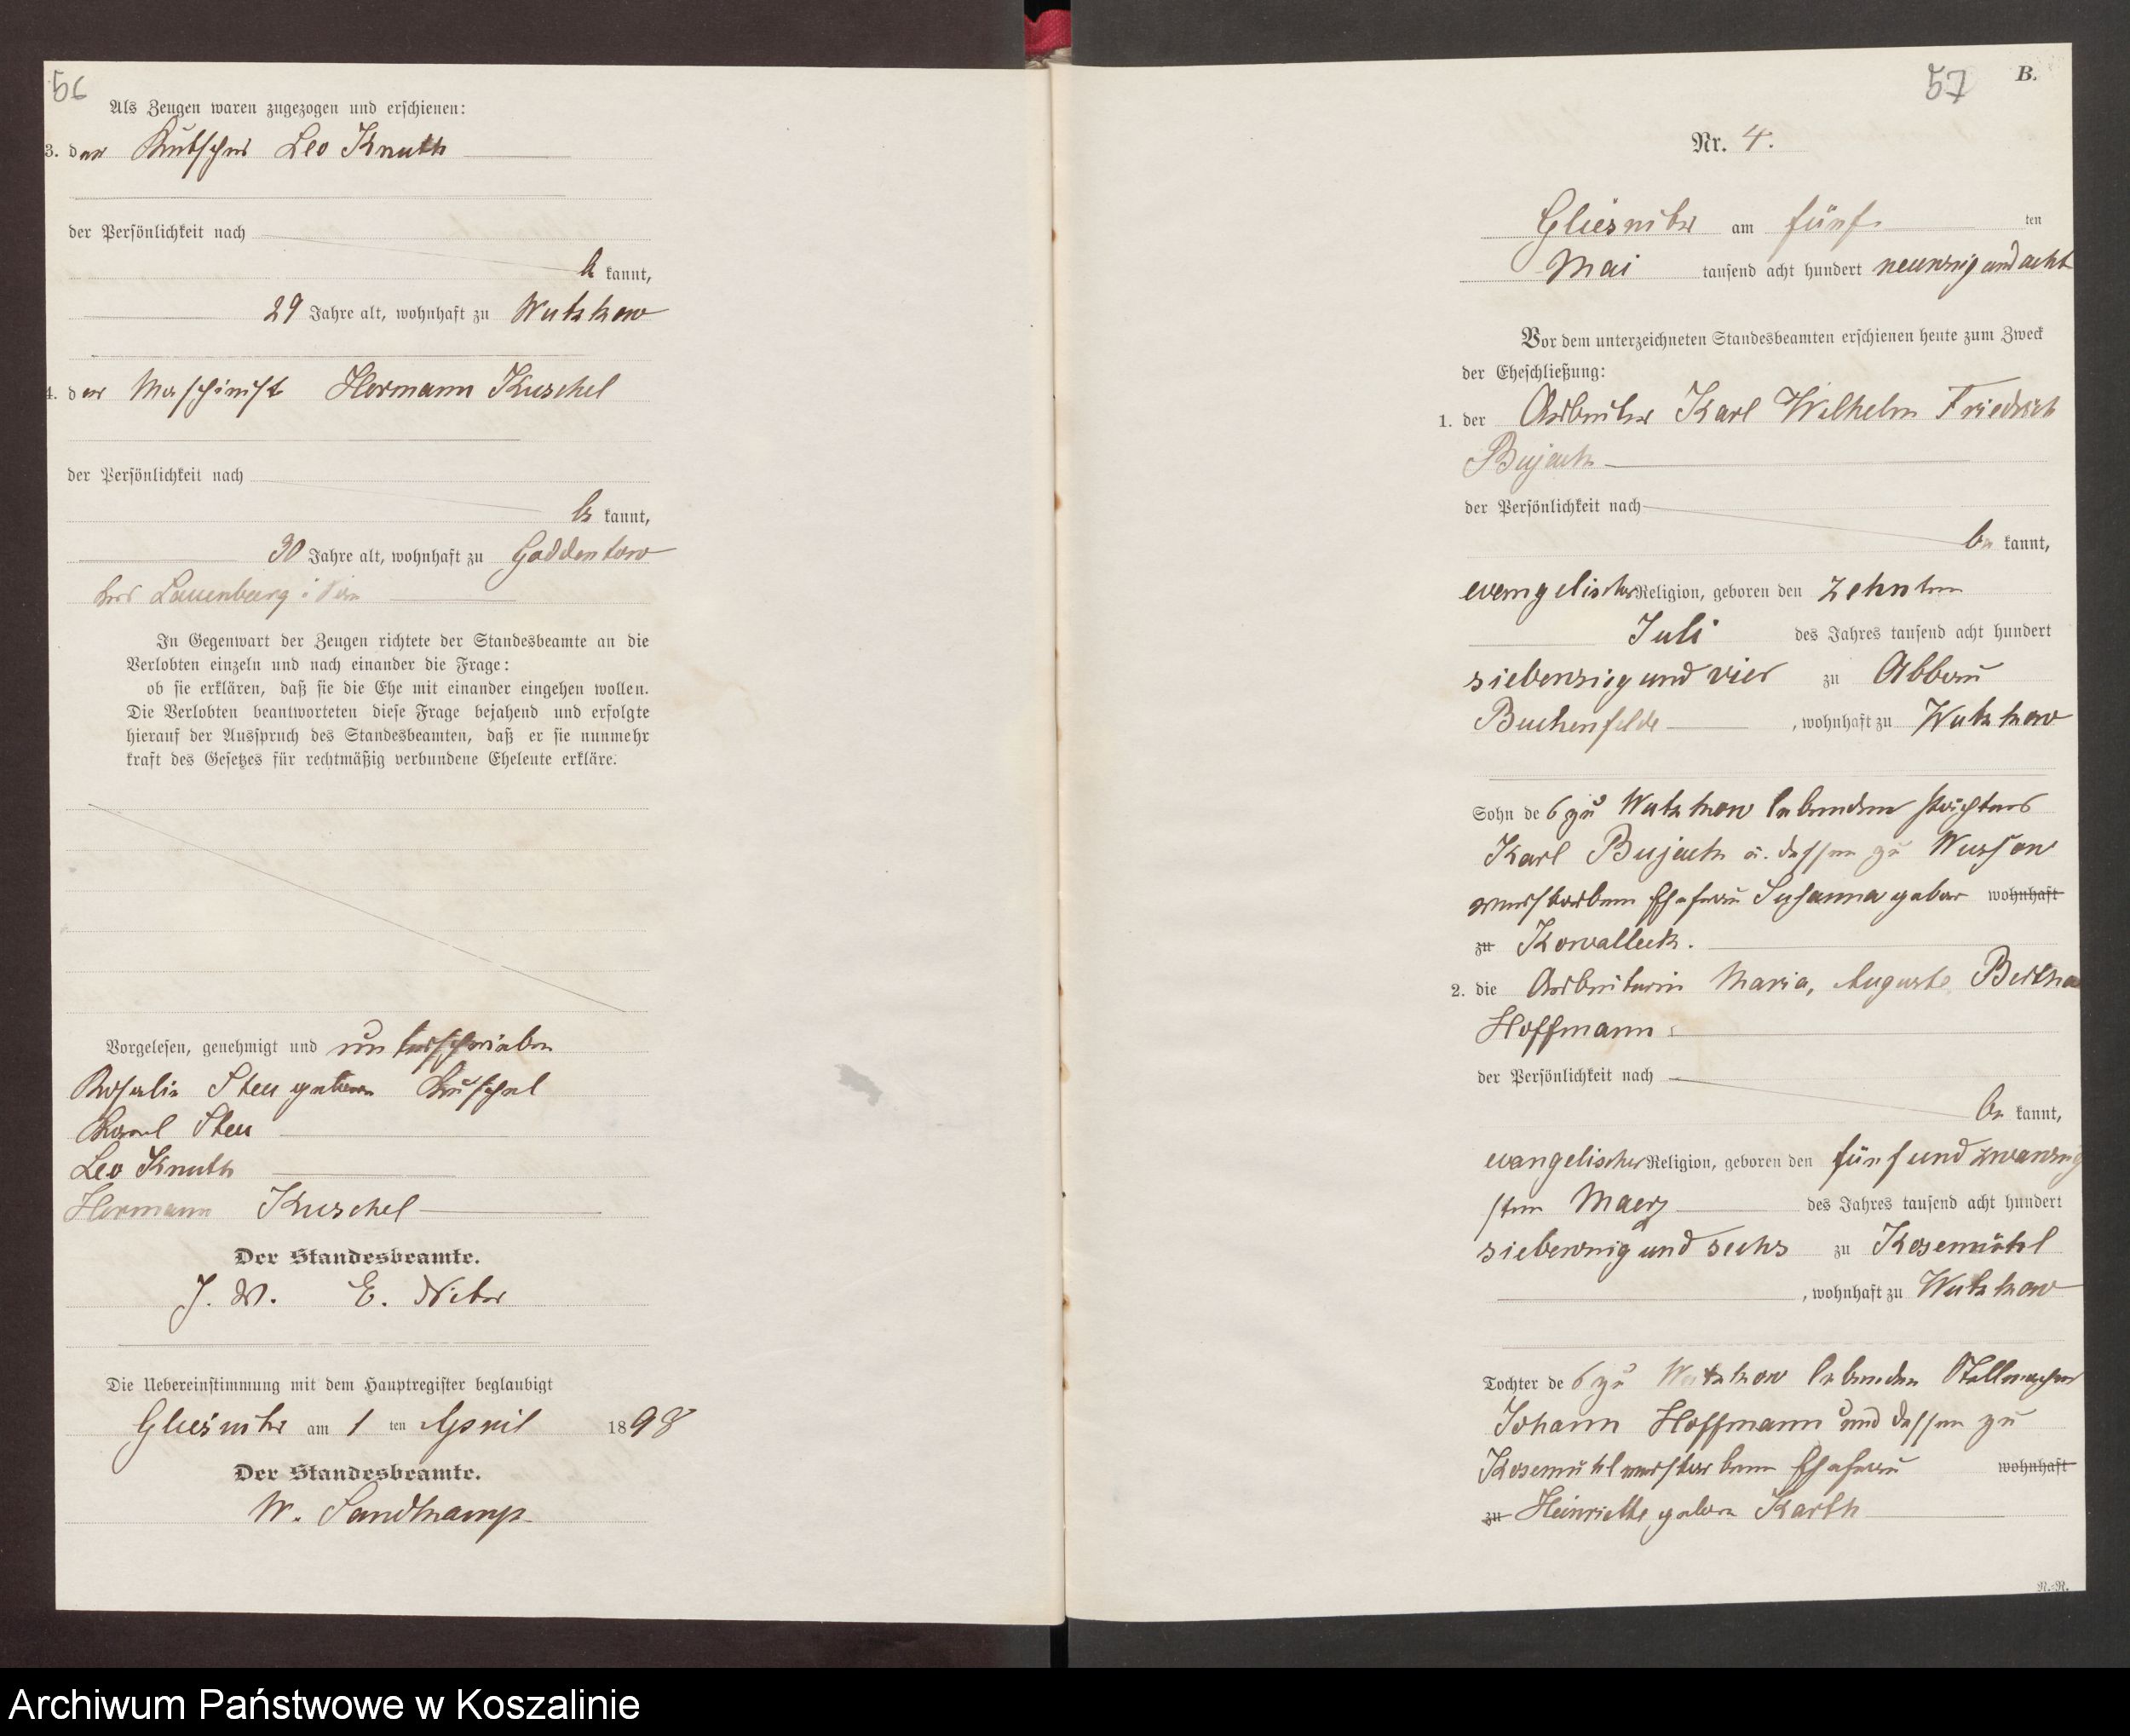 56
Als Zeugen waren zugezogen und erschienen:
3. der Kutscher Leo Knuth
der Persönlichkeit nach
be kannt,
29 Jahre alt, wohnhaft zu Wutzkow
4. der Maschinist Hermann Kuschel
der Persönlichkeit nach
be kannt,
30 Jahre alt, wohnhaft zu Goddentow
Lauenburg i/Pom
In Gegenwart der Zeugen richtete der Standesbeamte an die
Verlobten einzeln und nach einander die Frage:
ob sie erklären, daß sie die Ehe mit einander eingehen wollen.
Die Verlobten beantworteten diese Frage bejahend und erfolgte
hierauf der Ausspruch des Standesbeamten, daß er sie nunmehr
kraft des Gesetzes für rechtmäßig verbundene Eheleute erkläre.
Vorgelesen, genehmigt und unterschrieben
Rosalie Steu geboren Kuschel
Karl Steu
Leo Knuth
Hermann Kuschel
Der Standesbeamte.
J. V. E. Nitor
Die Uebereinstimmung mit dem Hauptregister beglaubigt
Gliesnitz am 1 ten April 1898
Der Standesbeamte.
W. Sandkamp
57 B.
Nr. 4.
Gliesnitz am fünf ten
Mai tausend acht hundert neunzig und acht
Vor dem unterzeichneten Standesbeamten erschienen heute zum Zweck
der Eheschließung:
1. der Arbeiter Karl Wilhelm Friedrich
Bujack
der Persönlichkeit nach
be kannt,
evangelischer Religion, geboren den zehnten
Juli des Jahres tausend acht hundert
siebenzig und vier zu Abbau
Buchenfelde , wohnhaft zu Wutzkow
Sohn des zu Wutzkow lebenden Pächters
Karl Bujack u. dessen zu Wussow
verstorbenen Ehefrau Susanna gebor wohnhaft
zu Kowalleck.
2. die Arbeiterin Maria, Auguste Bertha
Hoffmann
der Persönlichkeit nach
be kannt,
evangelischer Religion, geboren den fünf und zwanzig
sten Maerz des Jahres tausend acht hundert
siebenzig und sechs zu Kosemühl
, wohnhaft zu Wutzkow
Tochter des zu Wutzkow lebenden Stellmacher
Johann Hoffmann und dessen zu
Kosemühl verstorbenen Ehefrau wohnhaft
zu Heinriette geboren Karth
R.-R.
Archiwum Państwowe w Koszalinie